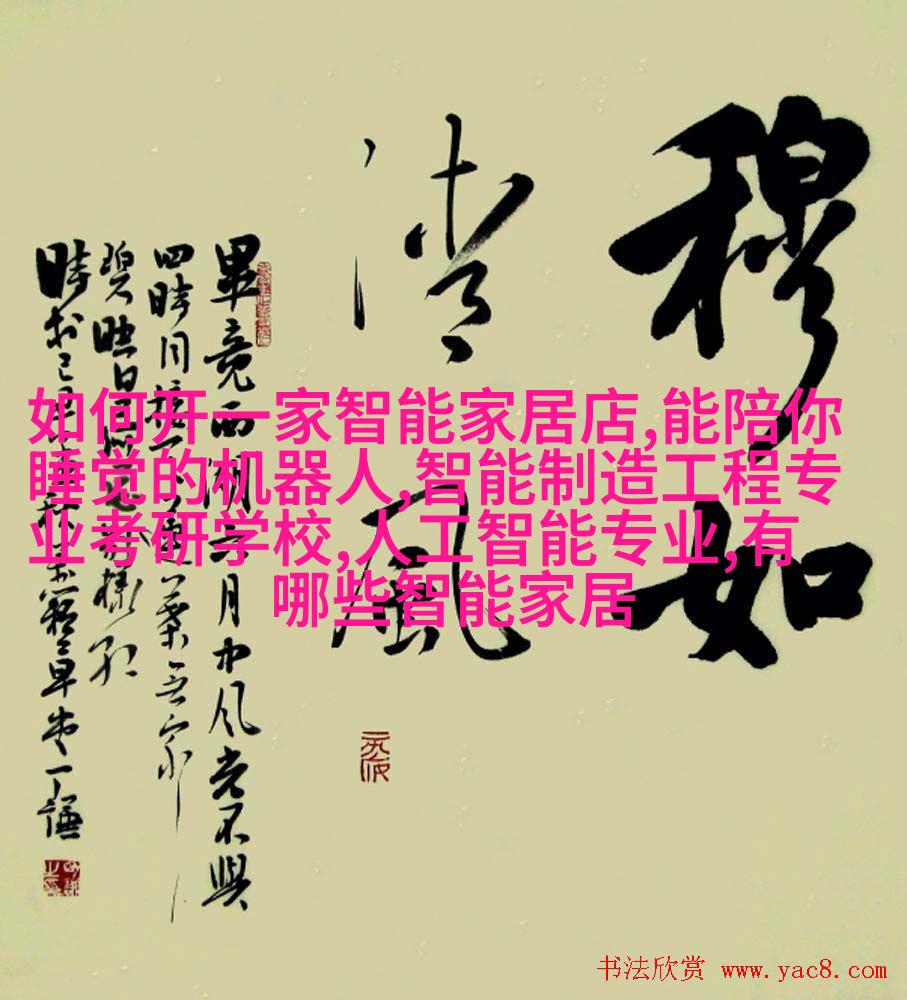 穆如
清風
畢竟西湖六月中风光不與
四時同接天蓮葉無窮
碧映日荷花别樣红
如何开一家智能家居店,能陪你
睡觉的机器人,智能制造工程专
业考研学校,人工智能专业,有
哪些智能家居
书法欣赏 www.yac8.com